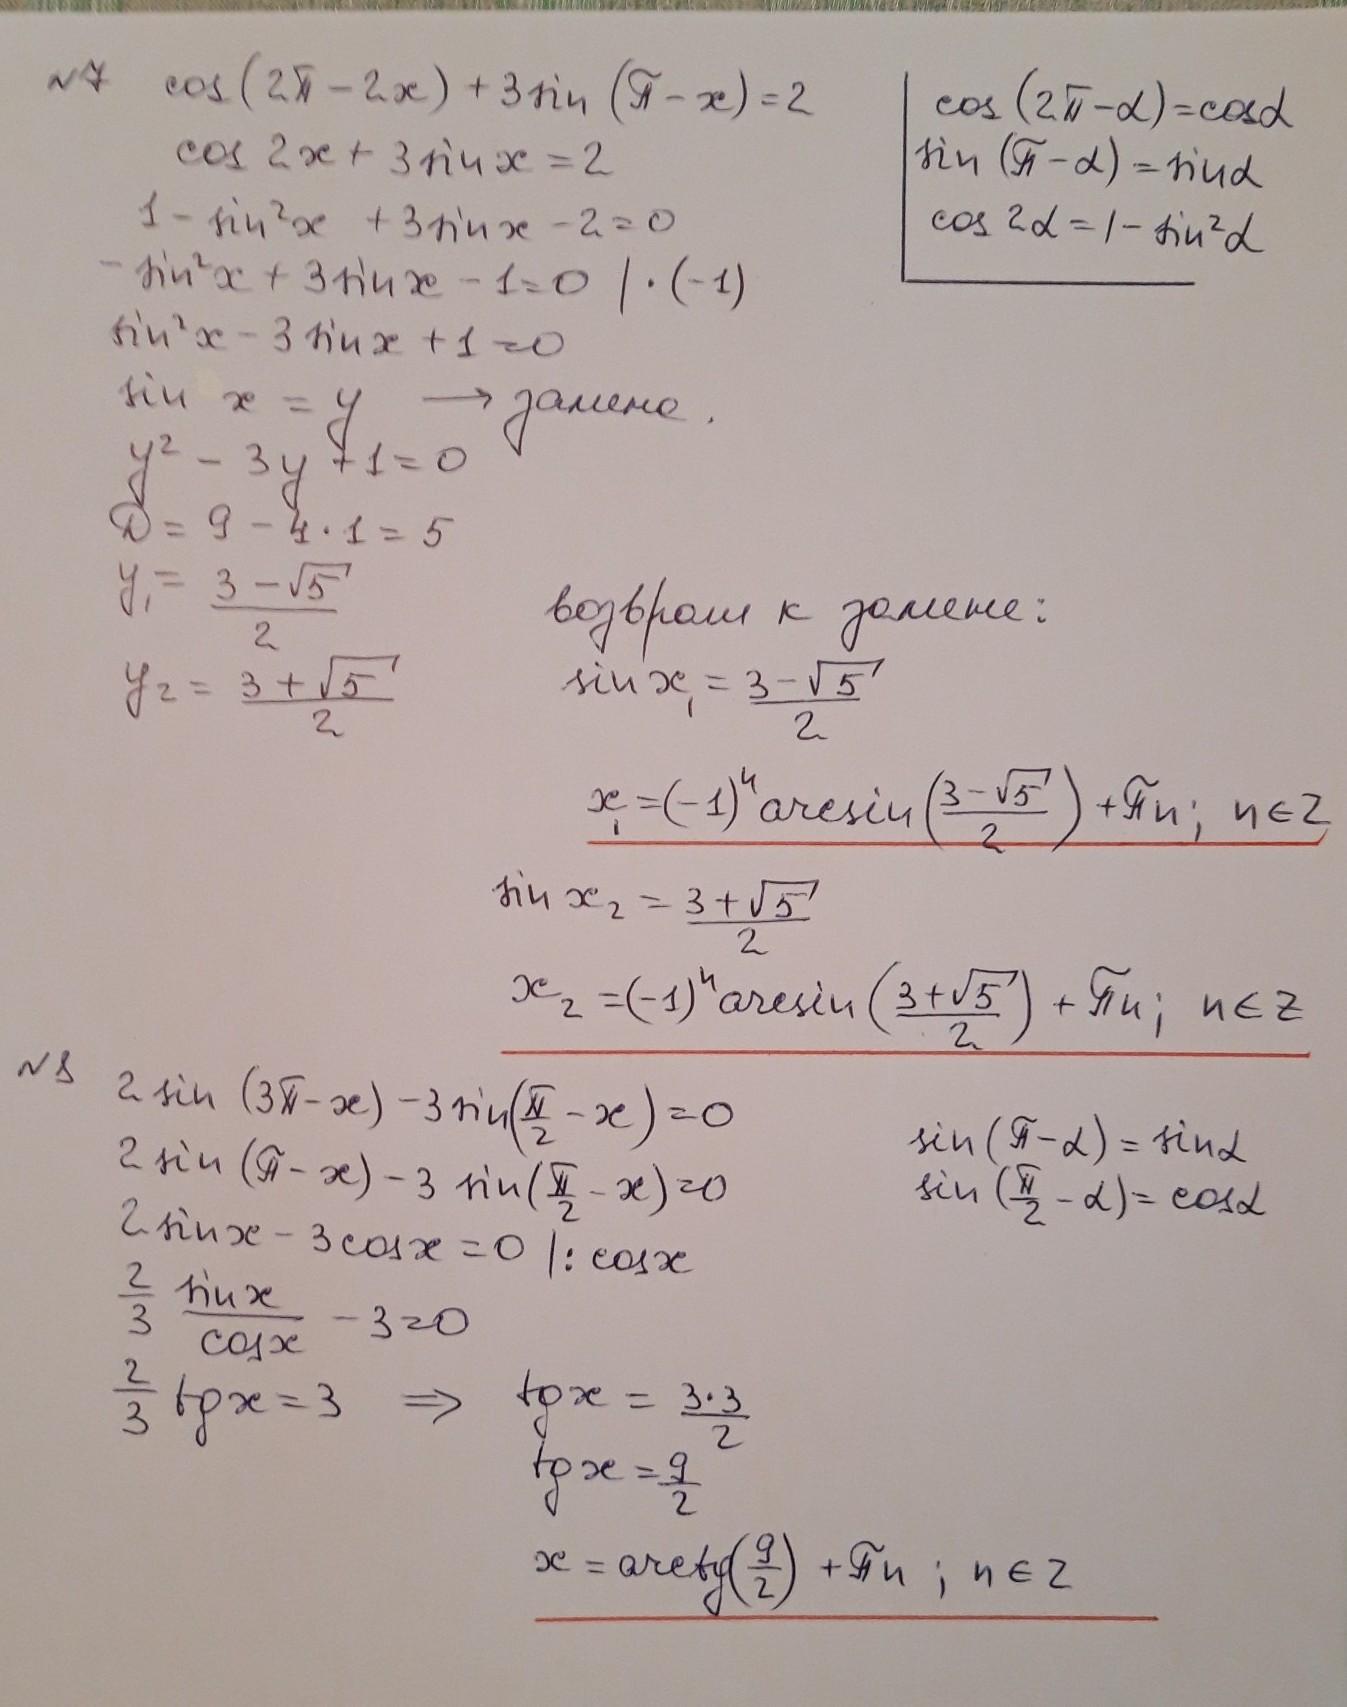 №7 cos(2π-2x)+3sin(π-x)=2
cos2x+3sinx=2
1-sin²x+3sinx-2=0
-sin²x+3sinx-1=0 |·(-1)
sin²x-3sinx+1=0
sin x=y → замена.
y²-3y+1=0
D=9-4·1=5
y₁=(3-√5)/2
y₂=(3+√5)/2
cos(2π-α)=cosα
sin(π-α)=sinα
cos2α=1-sin²α
возврат к замене:
sinx₁=(3-√5)/2
x₁=(-1)ⁿarcsin((3-√5)/2)+πn; n∈Z
sinx₂=(3+√5)/2
x₂=(-1)ⁿarcsin((3+√5)/2)+πn; n∈Z
№8 2sin(3π-x)-3sin(π/2-x)=0
2sin(π-x)-3sin(π/2-x)=0
2sinx-3cosx=0 |:cosx
2/3 sinx/cosx-3=0
2/3 tgx=3 ⇒ tgx=(3·3)/2
tgx=9/2
x=arctg(9/2)+πn; n∈Z
sin(π-α)=sinα
sin(π/2-α)=cosα